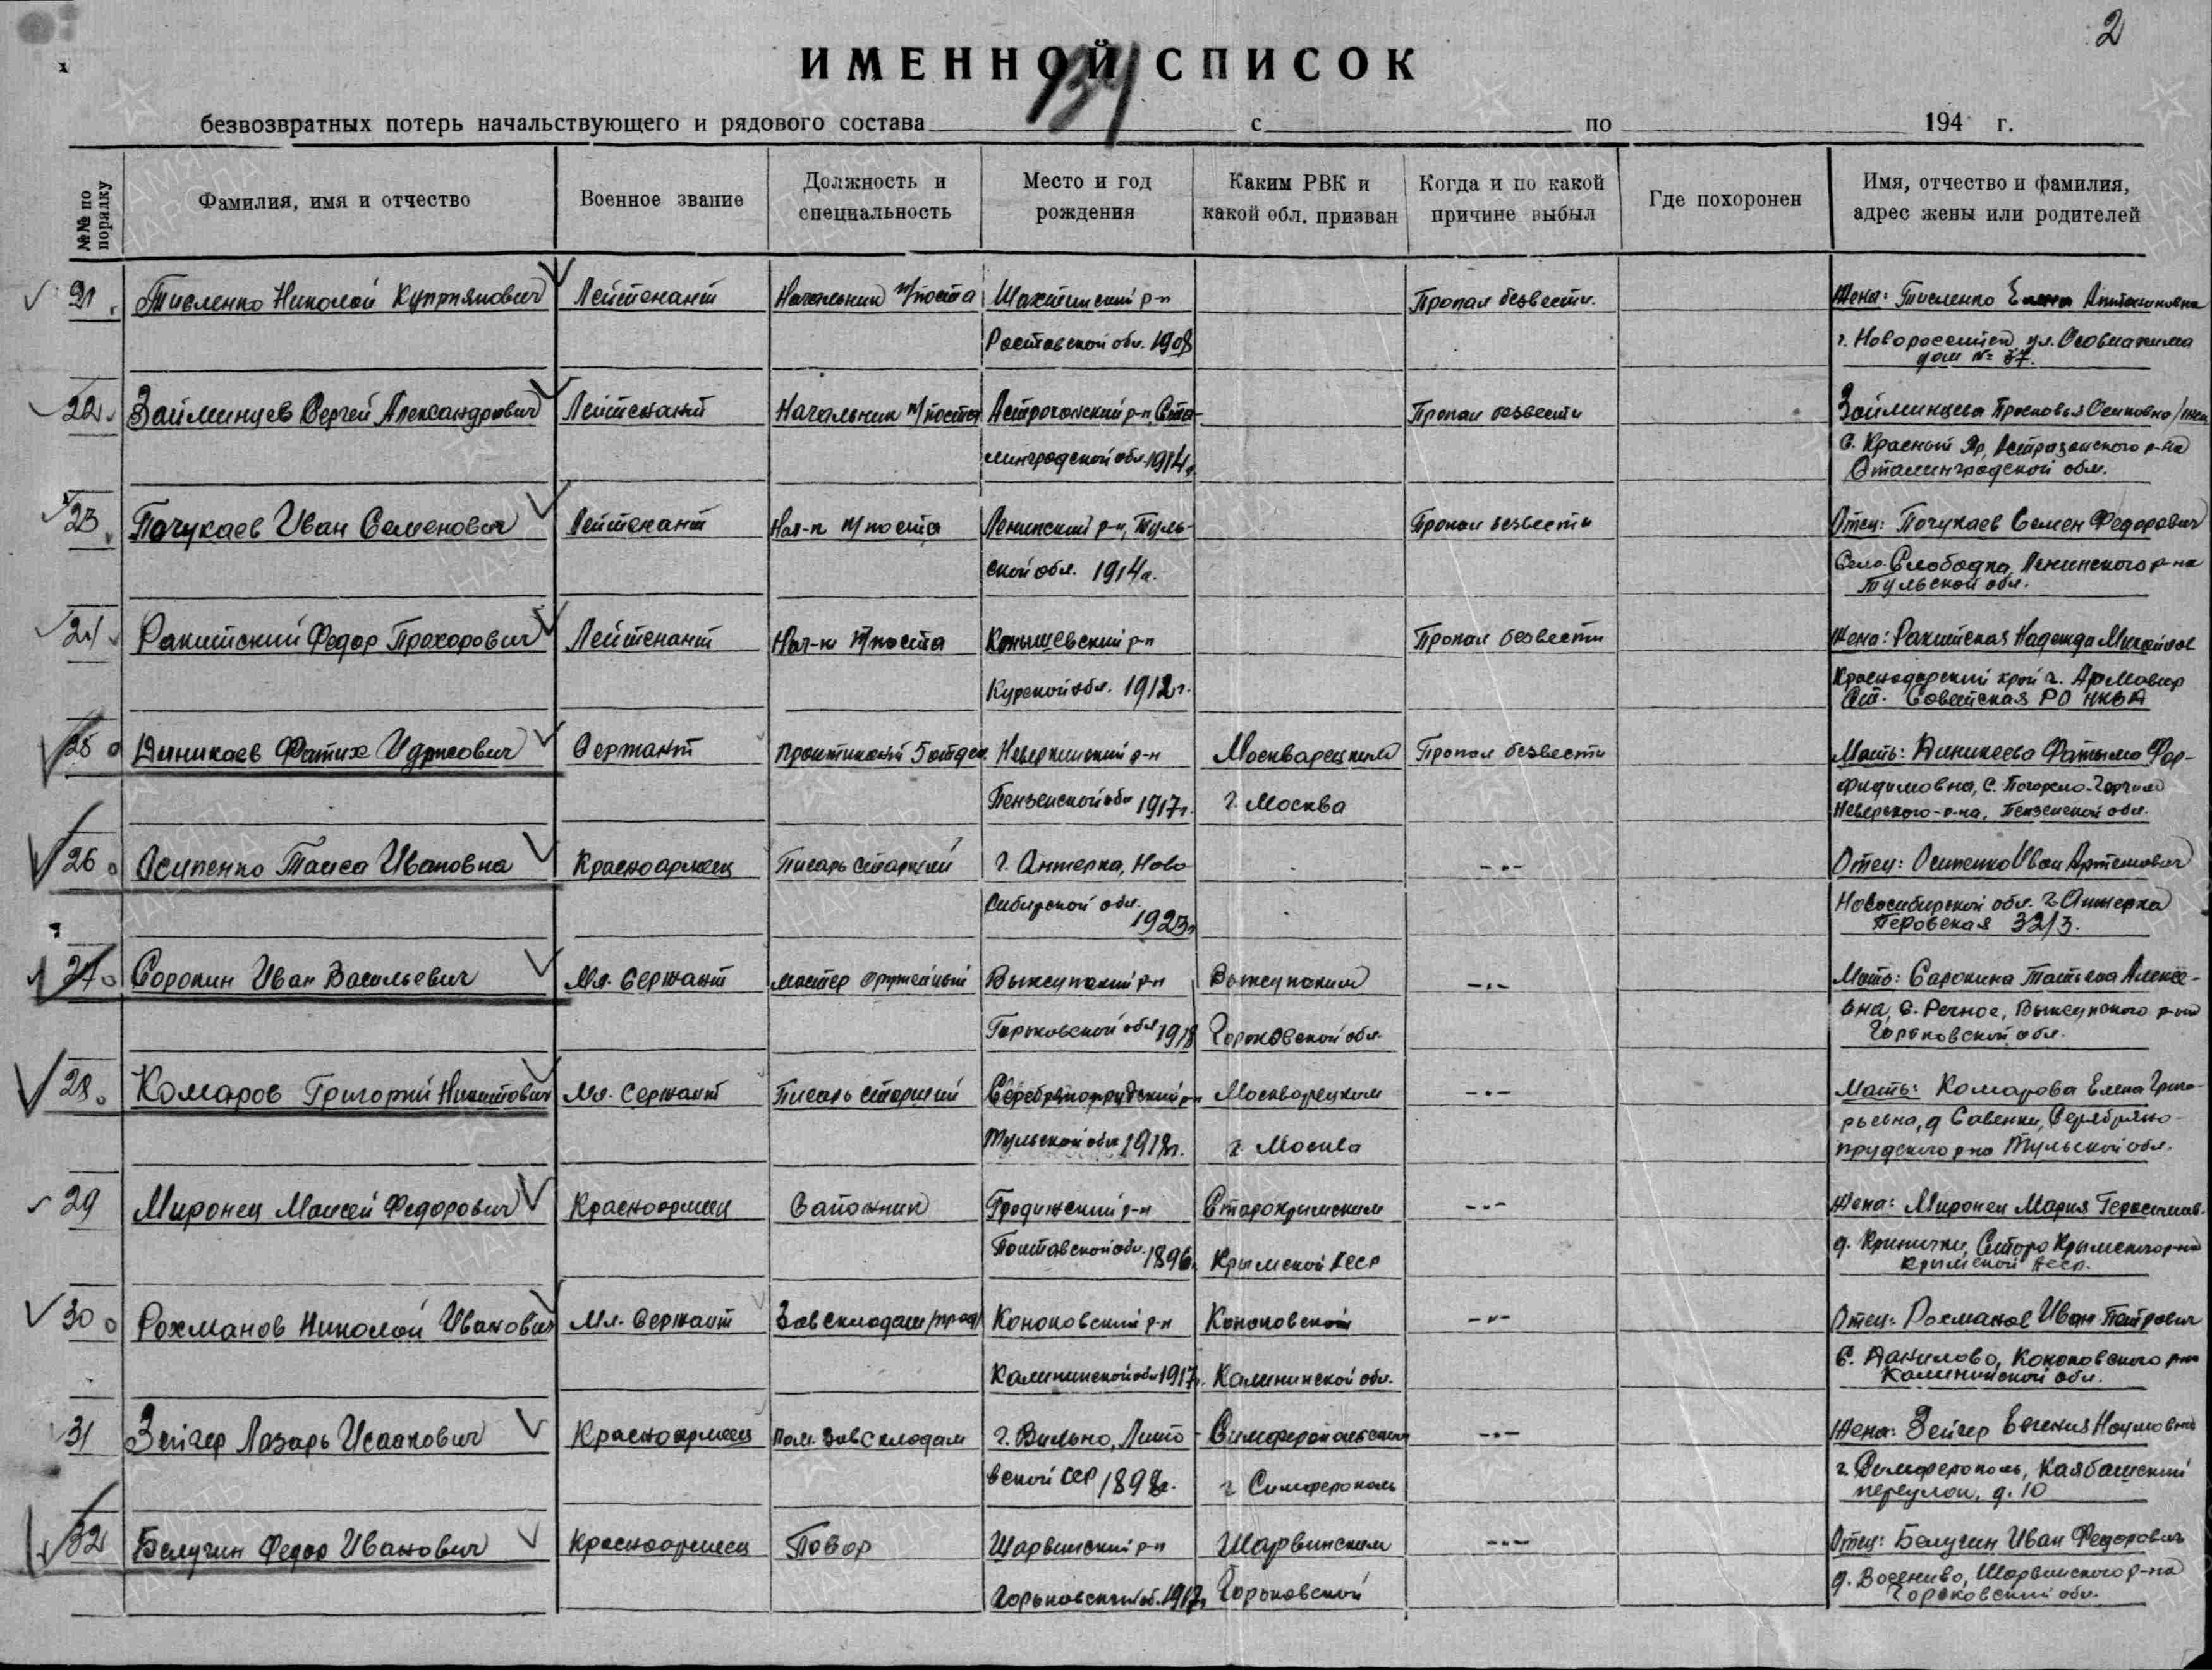 2
ИМЕННОЙ СПИСОК
безвозвратных потерь начальствующего и рядового состава с по 194 г.
№№ по порядку
Фамилия, имя и отчество
Военное звание
Должность и специальность
Место и год рождения
Каким РВК и какой обл. призван
Когда и по какой причине выбыл
Где похоронен
Имя, отчество и фамилия, адрес жены или родителей
21 Тисленко Николай Куприянович Лейтенант Начальник п/поста Шахтинский р-н Пропал безвести. Жена: Тисленко Елена
Ростовской обл. 1908 г. Новороссийск ул. Осовиахима
дом № 37.
22 Займинцев Сергей Александрович Лейтенант Начальник п/поста Астраханский р-н, Ста- Пропал безвести Займинцева Просковья Осиповна /жена
линградской обл 1914г. С. Красный Яр, Астраханского р-на
Сталинградской обл.
23 Почукаев Иван Семенович Лейтенант Нач-к п/поста Ленинский р-н, Туль- Пропал безвести Отец: Почукаев Семен Федорович
ской обл. 1914г. Село. Слободка, Ленинского р-на
Тульской обл.
24 Ракитский Федор Прохорович Лейтенант Нач-к п/поста Конышевский р-н Пропал безвести Жена: Ракитская Надежда Михайлов
Курской обл. 1912г. Краснодарский край г. Армавир
Ст. Советская РО НКВД
25 Диникаев Фатих Идрисович Сержант практикант 5 отдел. Неверкинский р-н Москварецким Пропал безвести Мать: Диникеева Фатыма Фар-
Пензенской обл 1917г. г. Москва фидимовна, С.
Неверского-р-на, Пензенской обл.
26 Осипенко Таиса Ивановна Красноармеец Писарь старший г. Анжерка, Ново -"- Отец: Осипенко Иван Артемович
Сибирской обл. 1923г Новосибирской обл. г Анжерка
Перовская 32/3.
27 Сорокин Иван Васильевич Мл. Сержант мастер оружейный Выксунский р-н Выксунским -"- Мать: Сарокина Татьяна Алексе-
Горьковской обл 1918 Горьковской обл. вна, С. Речное, Выксунского р-на
Горьковской обл.
28 Комаров Григорий Никитович Мл. Сержант Писарь старший Серебрянопрудский р-н Москварецким -"- Мать: Комарова Елена Григо-
Тульской обл 1918г. г. Москва рьевна, д Савенки, Серебряно-
прудского р-на Тульской обл.
29 Миронец Моисей Федорович Красноармеец Сапожник р-н Старокрымским -"- Жена: Миронец Мария Герасимов.
Полтавской обл. 1896г. Крымской АССР д. Кринички, Старо Крымского р-на
Крымской АССР.
30 Рохманов Николай Иванович Мл. Сержант Зав складом /прод/ Конаковский р-н Конаковским -"- Отец: Рохманов Иван Петрович
Калининской обл 1917г. Калининской обл. С. Данилово, Конаковского р-на
Калининской обл.
31 Зейгер Лазарь Исаакович Красноармеец Пом. Зав Складом г. Вильно, Лито- Симферопольским -"- Жена: Зейгер Евгения Наумовна
вской ССР 1898г. г Симферополь г. Симферополь, Каябашский
переулок, д. 10
32 Белугин Федор Иванович Красноармеец Повар Шарвинский р-н Шарвинским -"- Отец: Белугин Иван Федорович
Горьковской об. 1917г Горьковской д. Восенево, Шарвинского р-на
Горьковский обл.